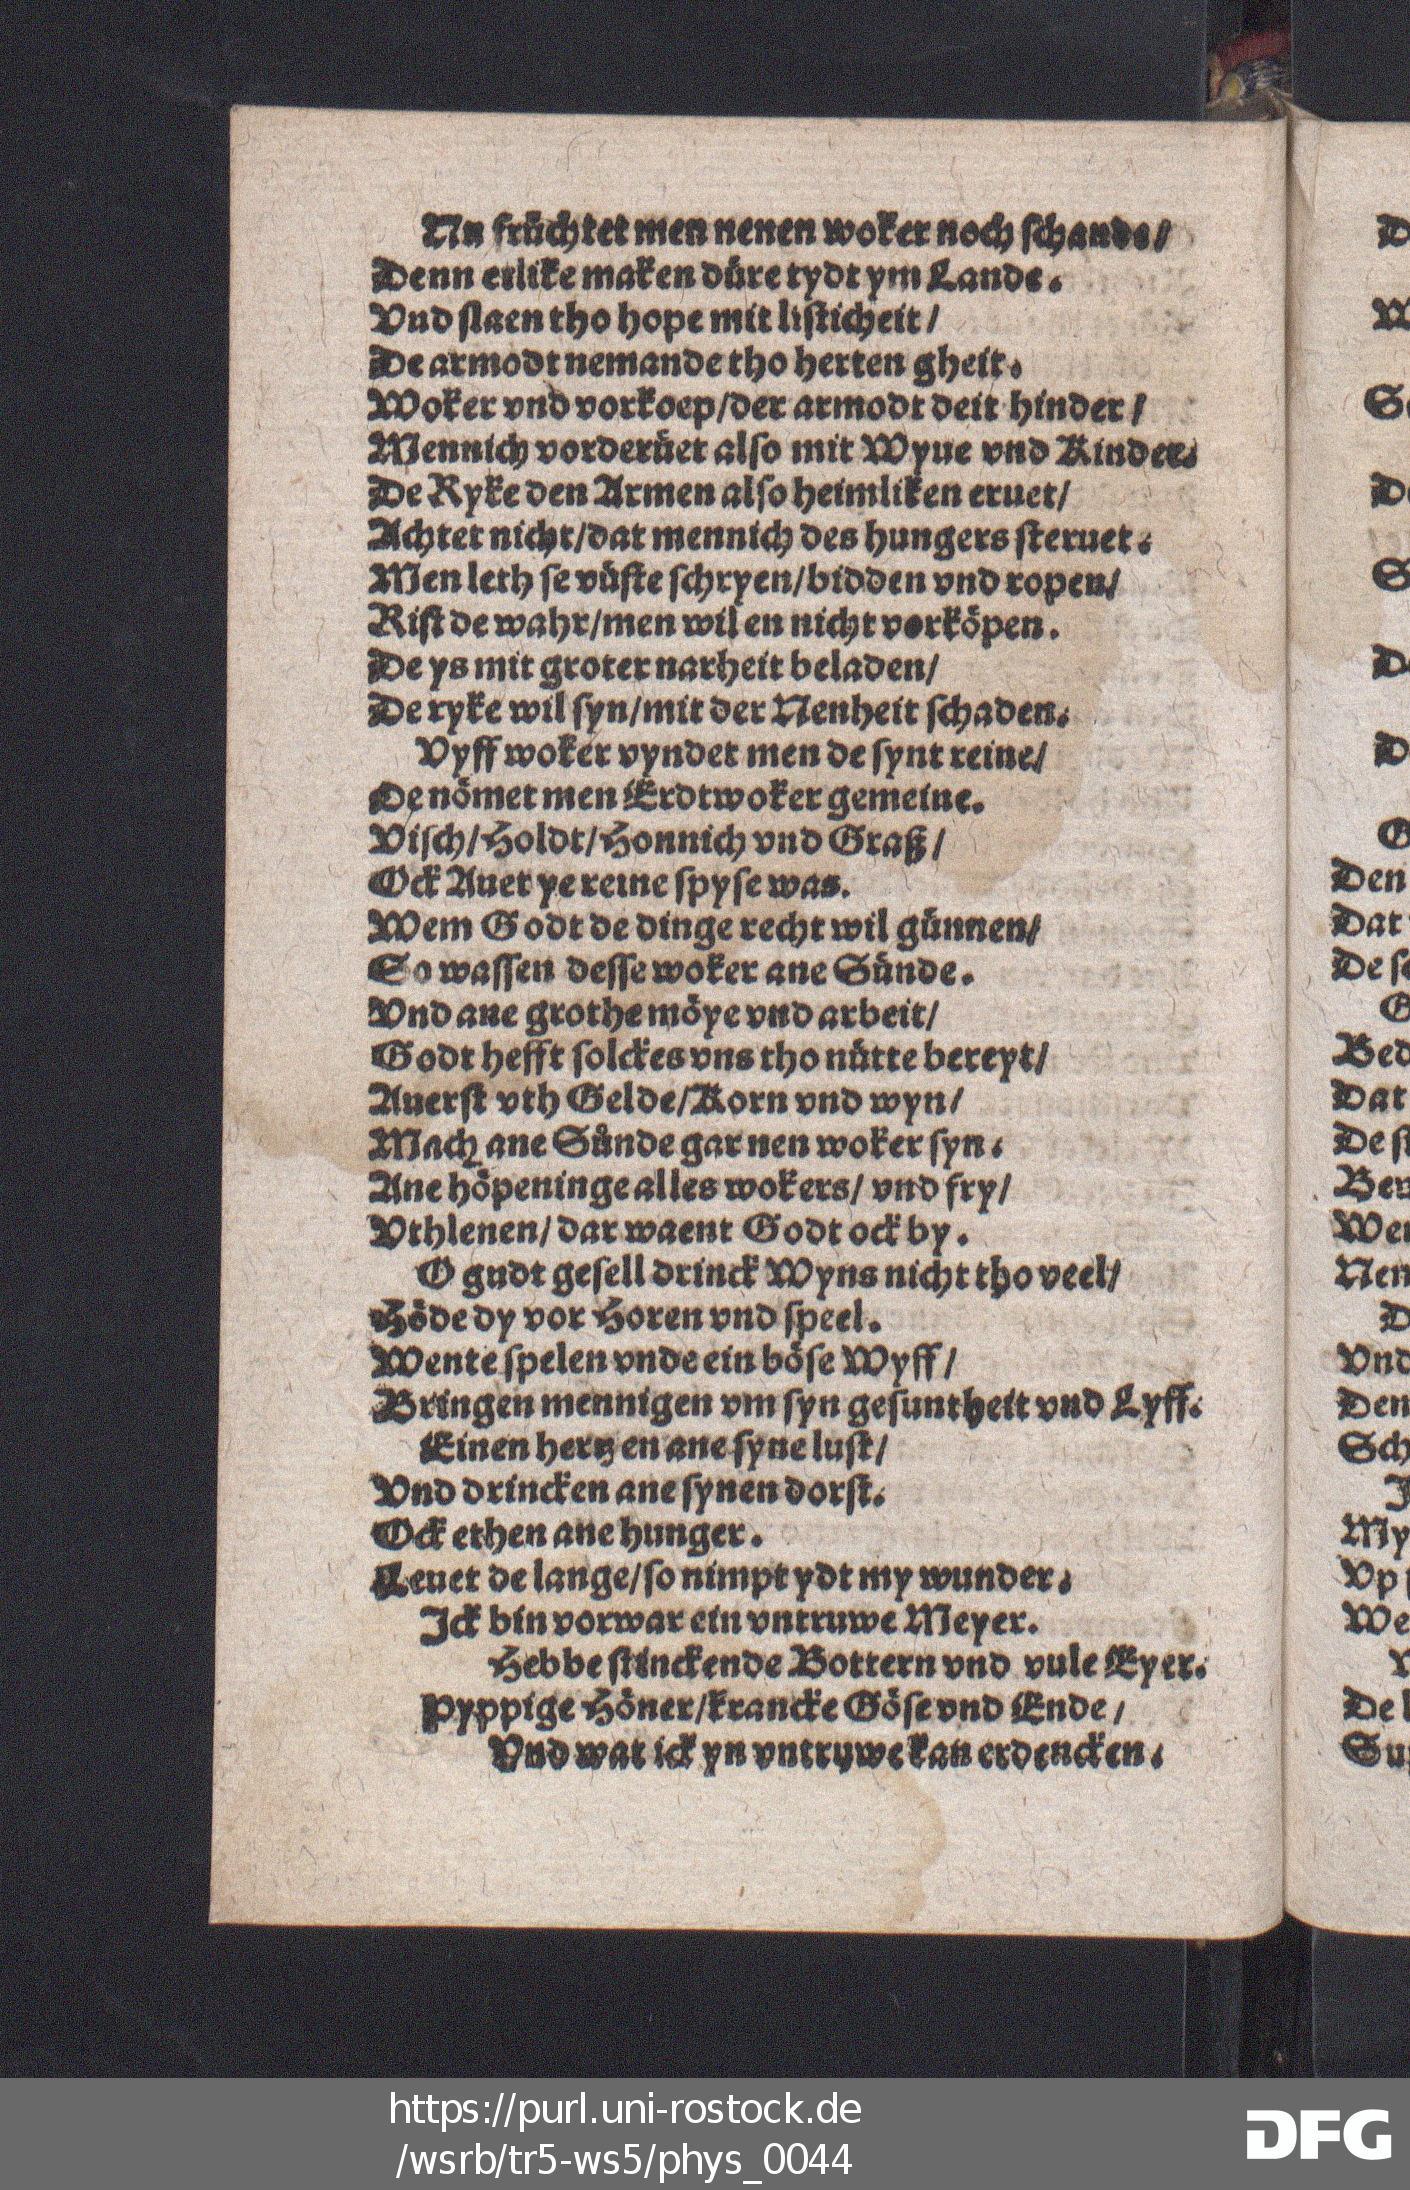 Nu früchtet men nenen woker noch schande/
Denn etlike maken düre tydt ym Lande.
Vnd slaen tho hope mit listicheit/
De armodt nemande tho herten gheit.
Woker vnd vorkoep/der armodt deit hinder/
Mennich vorderüet also mit Wyue vnd Kinder.
De Ryke den Armen also heimliken eruet/
Achtet nicht/dat mennich des hungers steruet.
Men leth se vüste schryen/bidden vnd ropen/
Rist de wahr/men wil en nicht vorköpen.
De ys mit groter narheit beladen/
De ryke wil syn/mit der Nenheit schaden.
Vyff woker vyndet men de synt reine/
De nömet men Erdtwoker gemeine.
Visch/Holdt/Honnich vnd Graß/
Ock Auet ye reine spyse was.
Wem Godt de dinge recht wil günnen/
So wassen desse woker ane Sünde.
Vnd ane grothe möye vnd arbeit/
Godt hefft solckes vns tho nütte bereyt/
Auerst vth Gelde/Korn vnd wyn/
Mach ane Sünde gar nen woker syn.
Ane höpeninge alles wokers/ vnd fry/
Vthlenen/dar waent Godt ock by.
O gudt gesell drinck Wyns nicht tho veel/
Höde dy vor Horen vnd speel.
Wente spelen vnde ein böse Wyff/
Bringen mennigen vm syn gesuntheit vnd Lyff.
Einen hertzen ane syne lust/
Vnd drincken ane synen dorst.
Ock ethen ane hunger.
Leuet de lange/so nimpt ydt my wunder.
Ick bin vorwar ein vntruwe Meyer.
Hebbe stinckende Bottern vnd vule Eyer.
Pyppige Höner/krancke Göse vnd Ende/
Vnd wat ick yn vntruwe kan erdencken.
https://purl.uni-rostock.de
/wsrb/tr5-ws5/phys_0044
DFG